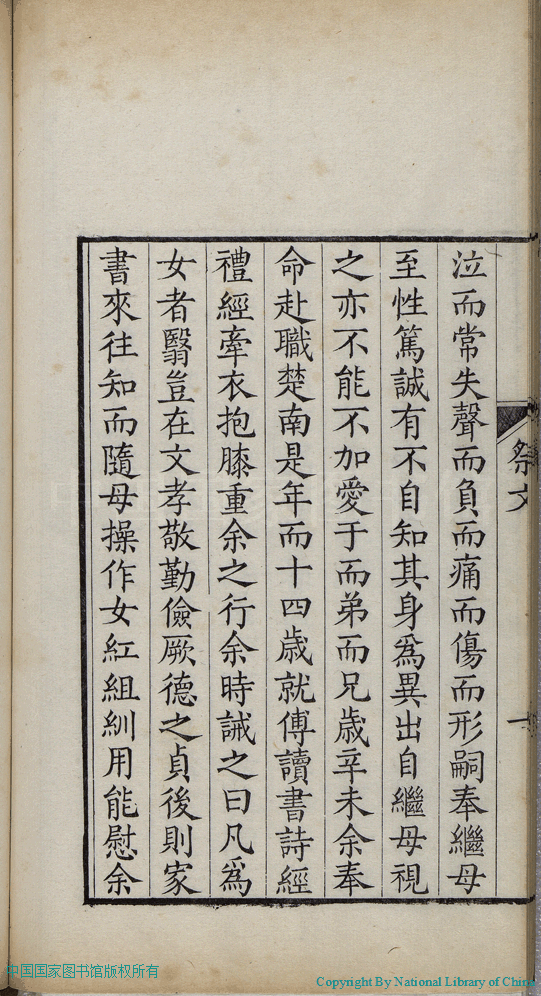 祭文
一
泣而常失聲而負而痛而傷而形嗣奉繼母
至性篤誠有不自知其身爲異出自繼母視
之亦不能不加愛于而弟而兄歲辛未余奉
命赴職楚南是年而十四歲就傅讀書詩經
禮經牽衣抱膝重余之行余時誡之曰凡爲
女者翳豈在文孝敬勤儉厥德之貞後則家
書來往知而隨母操作女紅組紃用能慰余
中国国家图书馆版权所有
Copyright By National Library of China